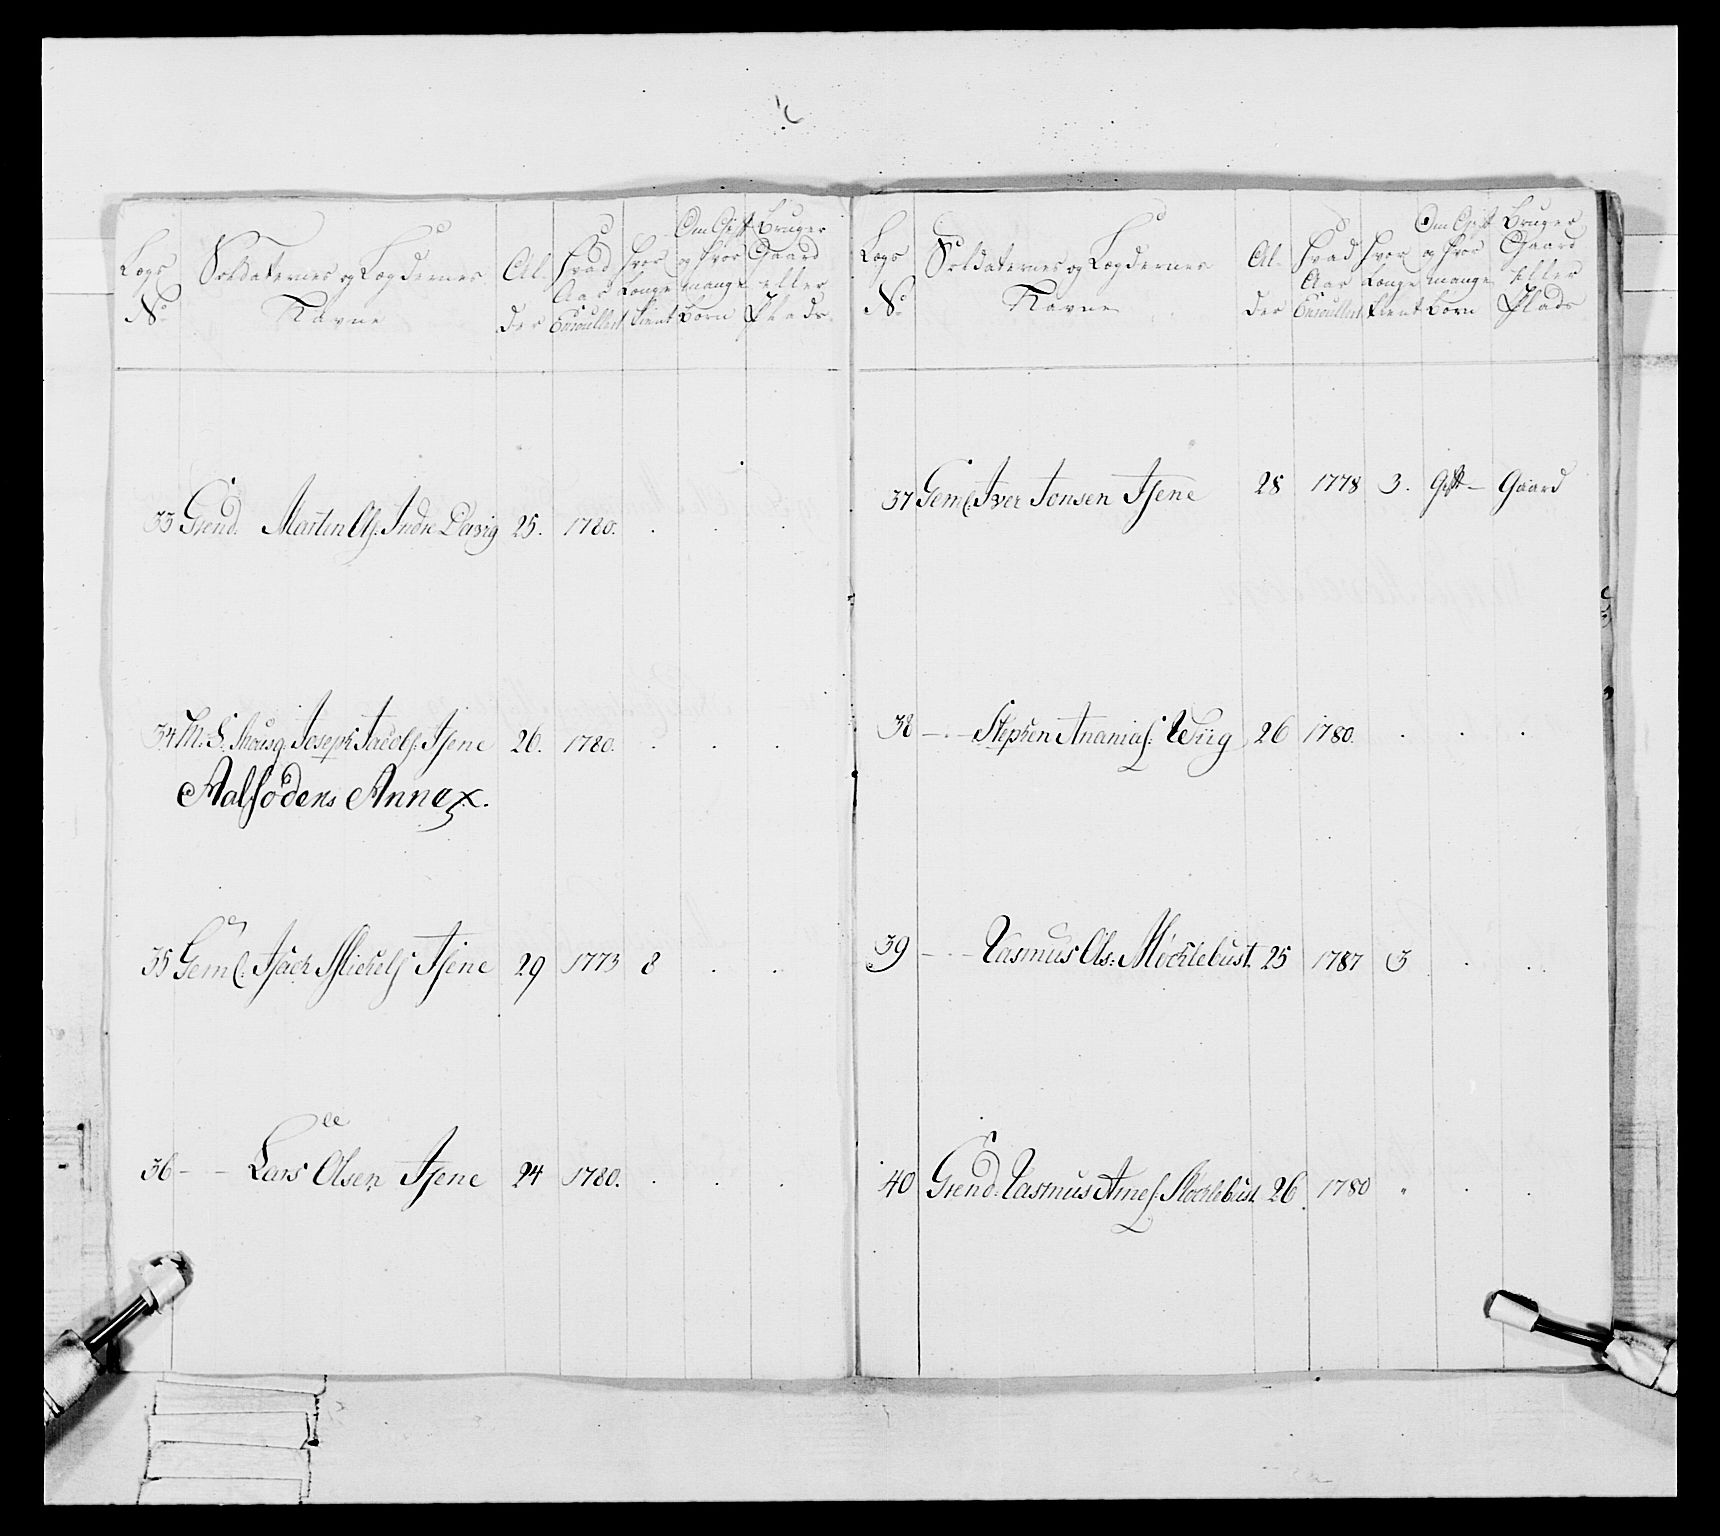 Lægs No
Soldaternes og Lægdernes Navne
Alder
Hvad Aar Enroullert
Hvor Længe tient
Om Gift og hvor mange børn
Bruger Gaard eller Plads
33 Grend. Marten Ols. Indre 25. 1780. . . .
34 M. S. Joseph Jacobs. Isene 26. 1780. . . .
Aalfodens Annex.
35 Geml. Isach Mickels Isene 29 1773 8 . .
36 - - Lars Olsen Isene 24 1780. . . .
Lægs No
Soldaternes og Lægdernes Navne
Alder
Hvad Aar Enroullert
Hvor Længe tient
Om Gift og hvor mange børn
Bruger Gaard eller Plads
37 Geml. Iver Jonsen Isene 28 1778 3. Gift - Gaard
38 - - Stephen Ananias. Wiig 26 1780. . . .
39 - - Rasmus Ols: Möcklebust. 25 1787 3 . .
40 Grend. Rasmus Arnes. Möcklebust. 26. 1780 " . .